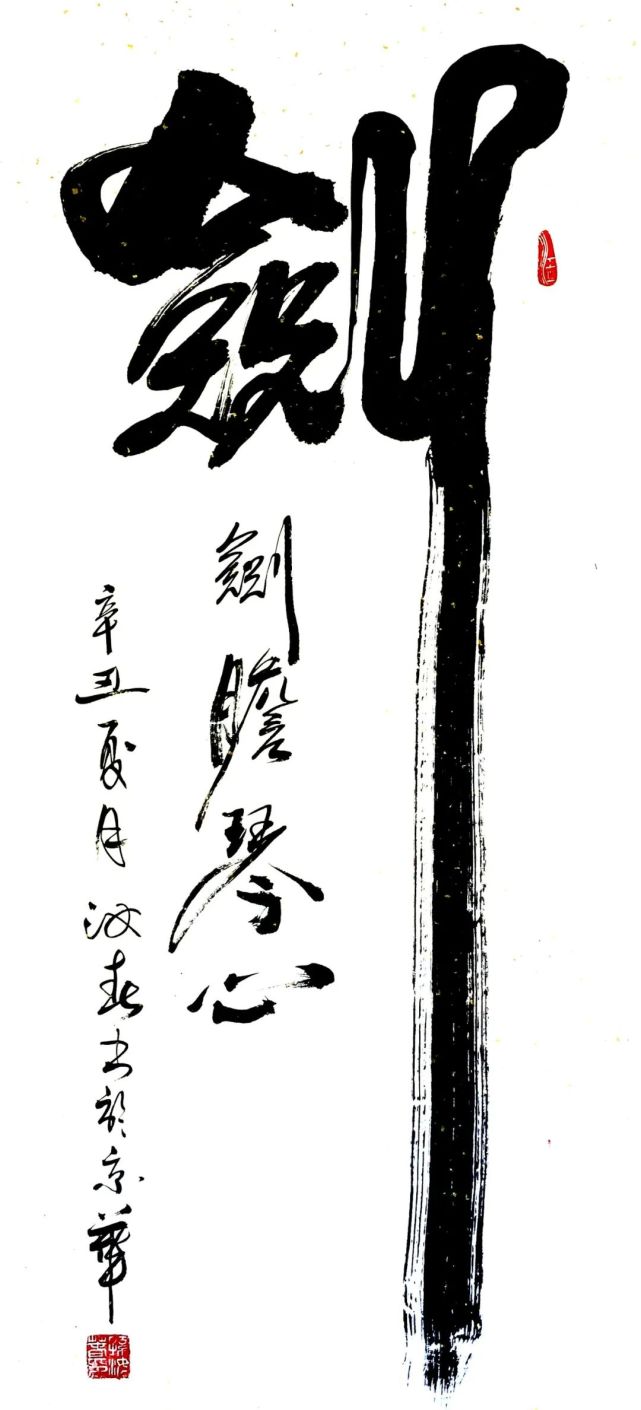 劍
劍膽琴心
辛丑夏月汝春书於京華